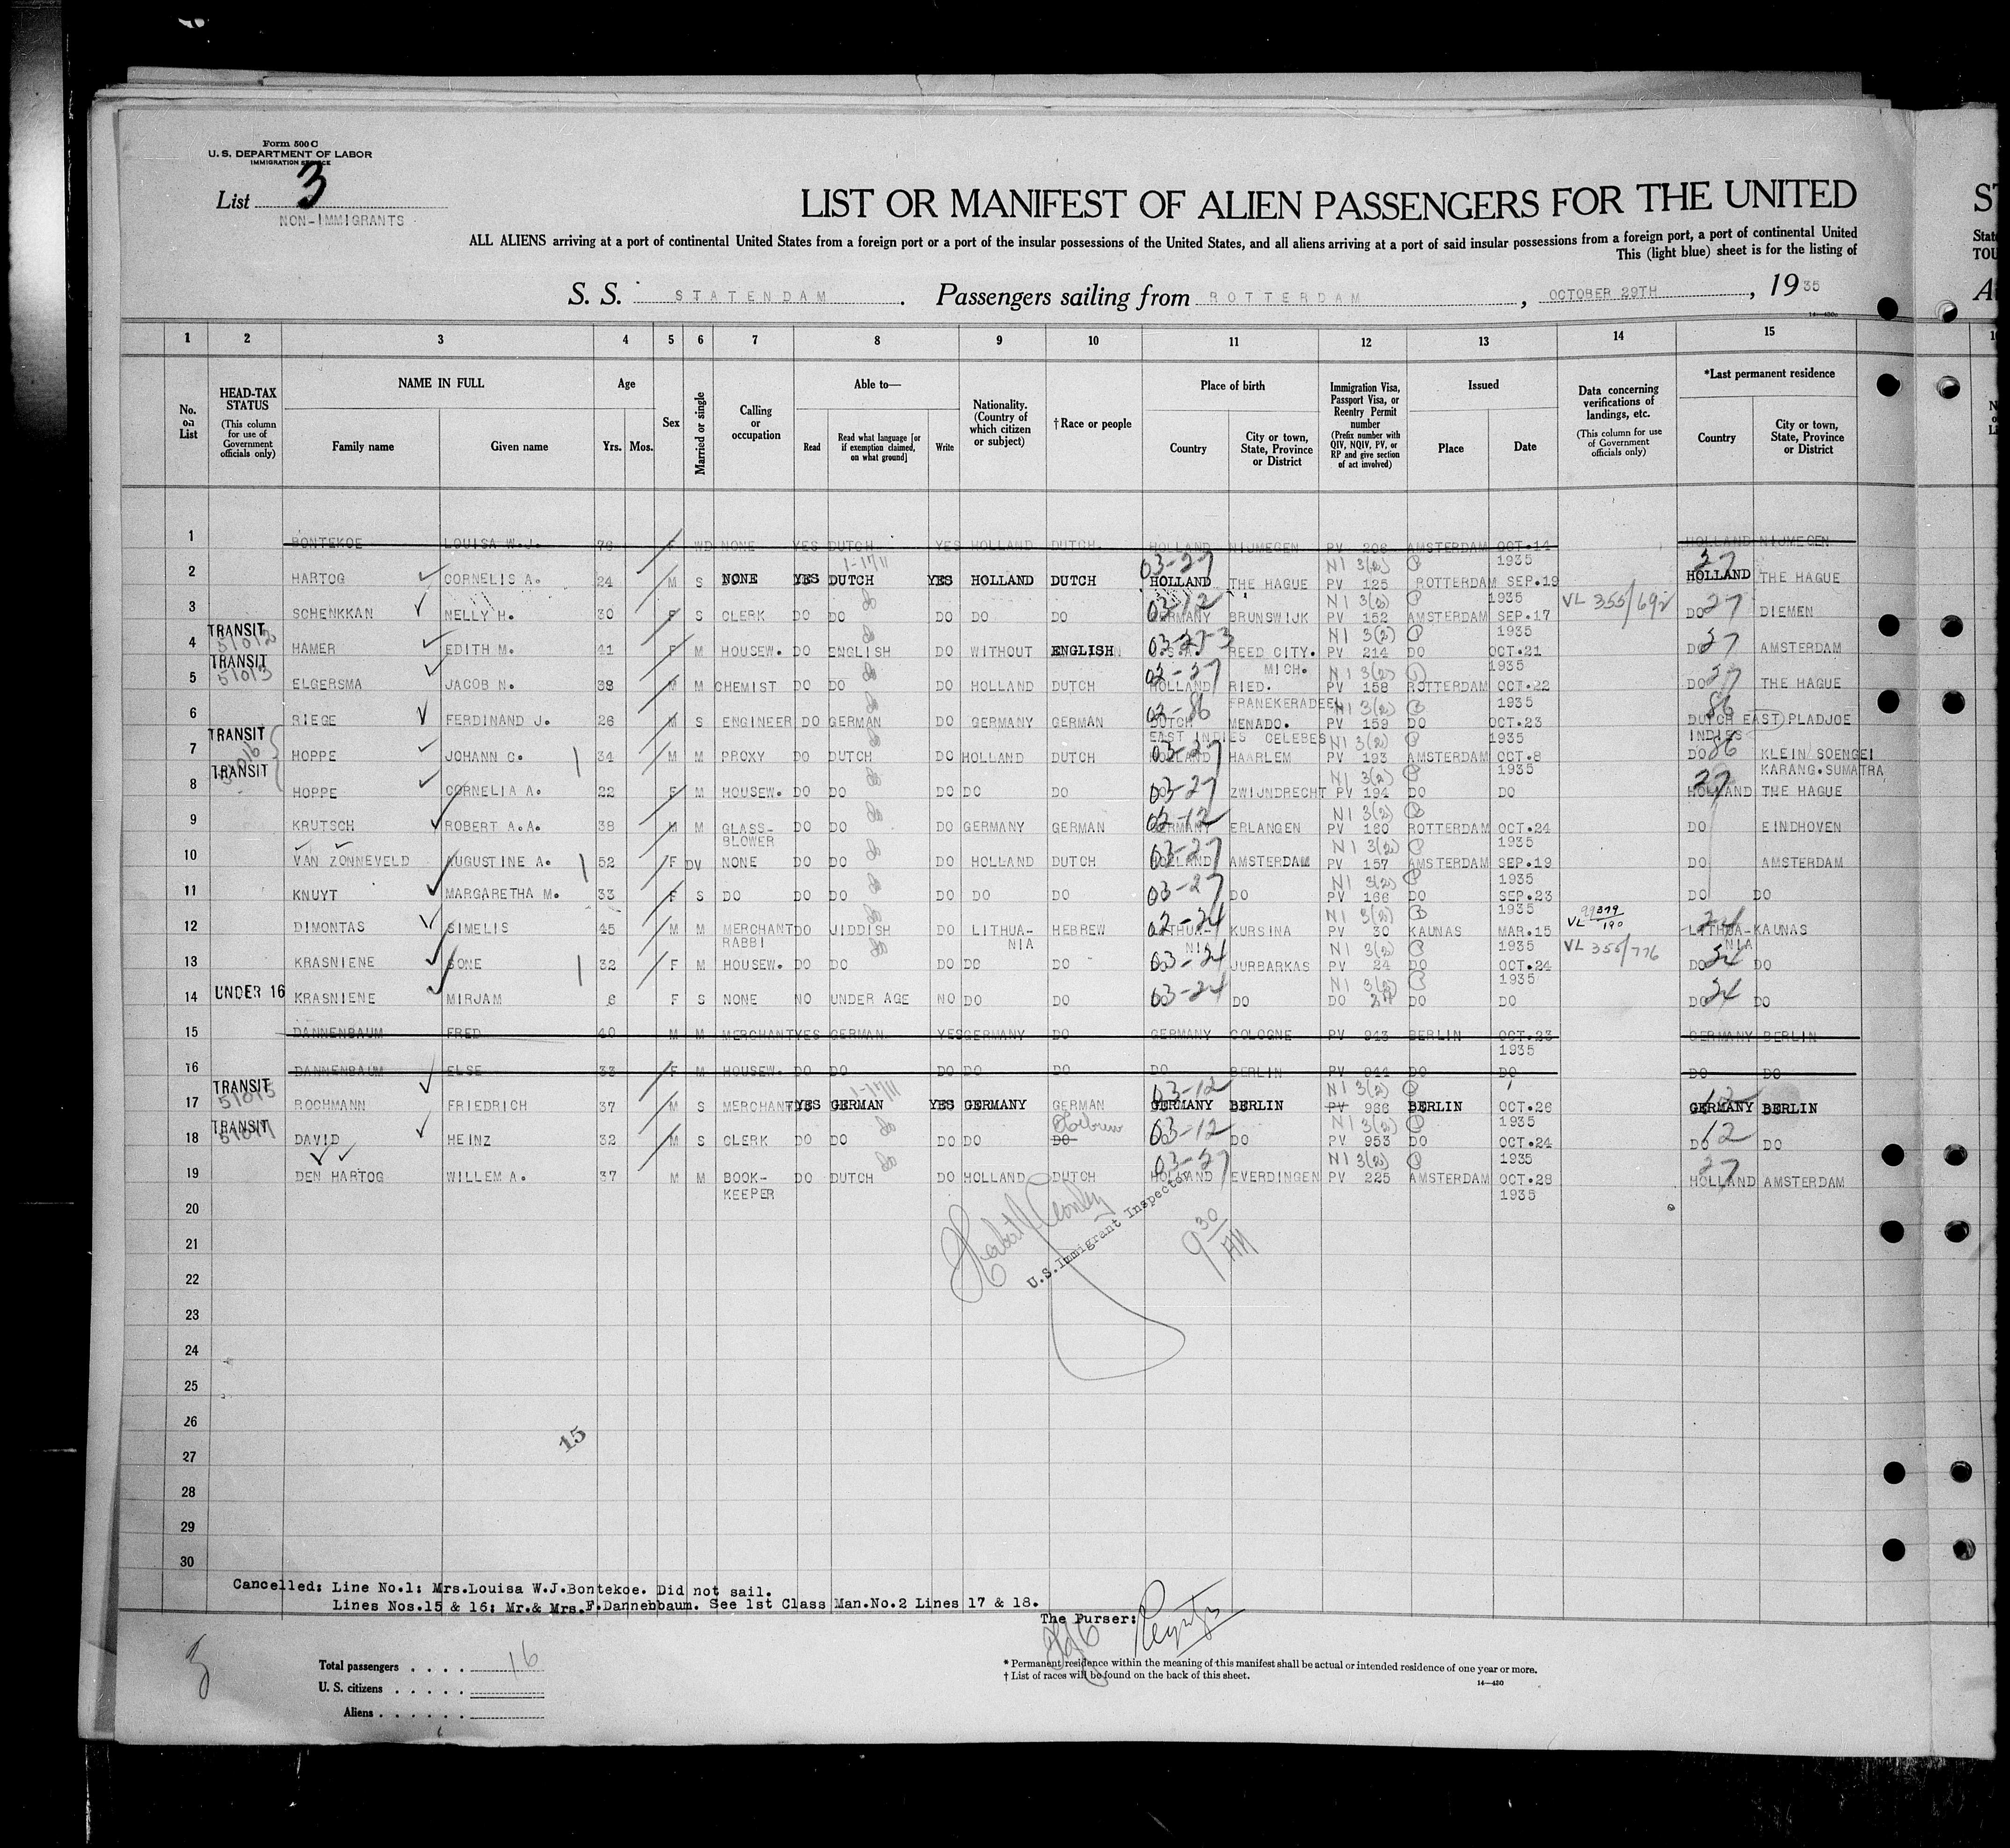 Form 500 C
U. S. DEPARTMENT OF LABOR
IMMIGRATION SERVICE
List 3
NON-IMMIGRANTS
LIST OR MANIFEST OF ALIEN PASSENGERS FOR THE UNITED
ALL ALIENS arriving at a port of continental United States from a foreign port or a port of the insular possessions of the United States, and all aliens arriving at a port of said insular possessions from a foreign port, a port of continental United
This (light blue) sheet is for the listing of
S. S. STATENDAM. Passengers sailing from ROTTERDAM, OCTOBER 29TH, 1935
1 2 3 4 5 6 7 8 9 10 11 12 13 14 15
No. on List
HEAD-TAX STATUS (This column for use of Government officials only)
NAME IN FULL
Family name
Given name
Age
Yrs. Mos.
Sex
Married or single
Calling or occupation
Able to—
Read
Read what language [or if exemption claimed, on what ground]
Write
Nationality. (Country of which citizen or subject)
†Race or people
Place of birth
Country
City or town, State, Province or District
Immigration Visa, Passport Visa, or Reentry Permit number (Prefix number with QIV, NQIV, PV, or RP and give section of act involved)
Issued
Place
Date
Data concerning verifications of landings, etc. (This column for use of Government officials only)
*Last permanent residence
Country
City or town, State, Province or District
1 BONTEKOE LOUISA W.J. 76 F WD NONE YES DUTCH YES HOLLAND DUTCH HOLLAND NIJMEGEN PV 206 AMSTERDAM OCT.14 1935 HOLLAND NIJMEGEN
2 HARTOG CORNELIS A. 24 M S NONE YES DUTCH YES HOLLAND DUTCH 03-27 HOLLAND THE HAGUE NI 3(2) PV 125 ROTTERDAM SEP.19 1935 27 HOLLAND THE HAGUE
3 SCHENKKAN NELLY H. 30 F S CLERK DO DO DO DO DO 03-12 GERMANY BRUNSWIJK NI 3(2) PV 152 AMSTERDAM SEP.17 1935 VL 355/692 DO 27 DIEMEN
TRANSIT 51012
4 HAMER EDITH M. 41 F M HOUSEW. DO ENGLISH DO WITHOUT ENGLISH 03-27-3 U.S.A. REED CITY. MICH. NI 3(2) PV 214 DO OCT.21 1935 DO 27 AMSTERDAM
TRANSIT 51013
5 ELGERSMA JACOB N. 38 M M CHEMIST DO DO DO HOLLAND DUTCH 02-27 HOLLAND RIED. FRANEKERADEEL NI 3(2) PV 158 ROTTERDAM OCT.22 1935 DO 27 THE HAGUE
6 RIEGE FERDINAND J. 26 M S ENGINEER DO GERMAN DO GERMANY GERMAN 02-86 DUTCH EAST INDIES MENADO. CELEBES NI 3(2) PV 159 DO OCT.23 1935 86 DUTCH EAST INDIES PLADJOE
TRANSIT
7 HOPPE JOHANN C. 34 M M PROXY DO DUTCH DO HOLLAND DUTCH 03-27 HOLLAND HAARLEM NI 3(2) PV 193 AMSTERDAM OCT.8 1935 DO 86 KLEIN SOENGEI KARANG.SUMATRA
TRANSIT
8 HOPPE CORNELIA A. 22 F M HOUSEW. DO DO DO DO DO 03-27 DO ZWIJNDRECHT NI 3(2) PV 194 DO DO 27 HOLLAND THE HAGUE
9 KRUTSCH ROBERT A.A. 38 M M GLASS-BLOWER DO DO DO GERMANY GERMAN 02-12 GERMANY ERLANGEN NI 3(2) PV 160 ROTTERDAM OCT.24 1935 DO EINDHOVEN
10 VAN ZONNEVELD AUGUSTINE A. 52 F DV NONE DO DO DO HOLLAND DUTCH 03-27 HOLLAND AMSTERDAM NI 3(2) PV 157 AMSTERDAM SEP.19 1935 DO AMSTERDAM
11 KNUYT MARGARETHA M. 33 F S DO DO DO DO DO DO 03-27 DO NI 3(2) PV 166 DO SEP.23 1935 DO DO
12 DIMONTAS SIMELIS 45 M M MERCHANT RABBI DO JIDDISH DO LITHUA-NIA HEBREW 02-24 LITHUA-NIA KURSINA NI 3(2) PV 30 KAUNAS MAR.15 1935 VL 99379/190 24 LITHUA-NIA KAUNAS
13 KRASNIENE SONE 32 F M HOUSEW. DO DO DO DO DO 03-24 DO JURBARKAS NI 3(2) PV 24 DO OCT.24 1935 VL 355/776 DO 24 DO
UNDER 16
14 KRASNIENE MIRJAM 6 F S NONE NO UNDER AGE NO DO DO 03-24 DO DO NI 3(2) DO 24 DO DO DO 24 DO
15 DANNENBAUM FRED 40 M M MERCHANT YES GERMAN YES GERMANY DO GERMANY COLOGNE PV 943 BERLIN OCT.23 1935 GERMANY BERLIN
16 DANNENBAUM ELSE 33 F M HOUSEW. DO DO DO DO DO DO BERLIN PV 944 DO DO DO DO
TRANSIT 51015
17 ROCHMANN FRIEDRICH 37 M S MERCHANT YES GERMAN YES GERMANY GERMAN 03-12 GERMANY BERLIN NI 3(2) PV 966 BERLIN OCT.26 1935 12 GERMANY BERLIN
TRANSIT
18 DAVID HEINZ 32 M S CLERK DO DO DO DO Hebrew DO 03-12 DO DO NI 3(2) PV 953 DO OCT.24 1935 DO 12 DO
19 DEN HARTOG WILLEM A. 37 M M BOOK-KEEPER DO DUTCH DO HOLLAND DUTCH 03-27 HOLLAND EVERDINGEN NI 3(2) PV 225 AMSTERDAM OCT.28 1935 27 HOLLAND AMSTERDAM
20
U.S. Immigrant Inspector
9 30 AM
21
22
23
24
25
26
15
27
28
29
30
Cancelled: Line No.1: Mrs.Louisa W.J.Bontekoe. Did not sail.
Lines Nos.15 & 16: Mr.& Mrs.F.Dannebbaum. See 1st Class Man.No.2 Lines 17 & 18.
The Purser:
Total passengers . . . . 16
U. S. citizens . . . . .
Aliens . . . . . .
* Permanent residence within the meaning of this manifest shall be actual or intended residence of one year or more.
† List of races will be found on the back of this sheet.
14—430